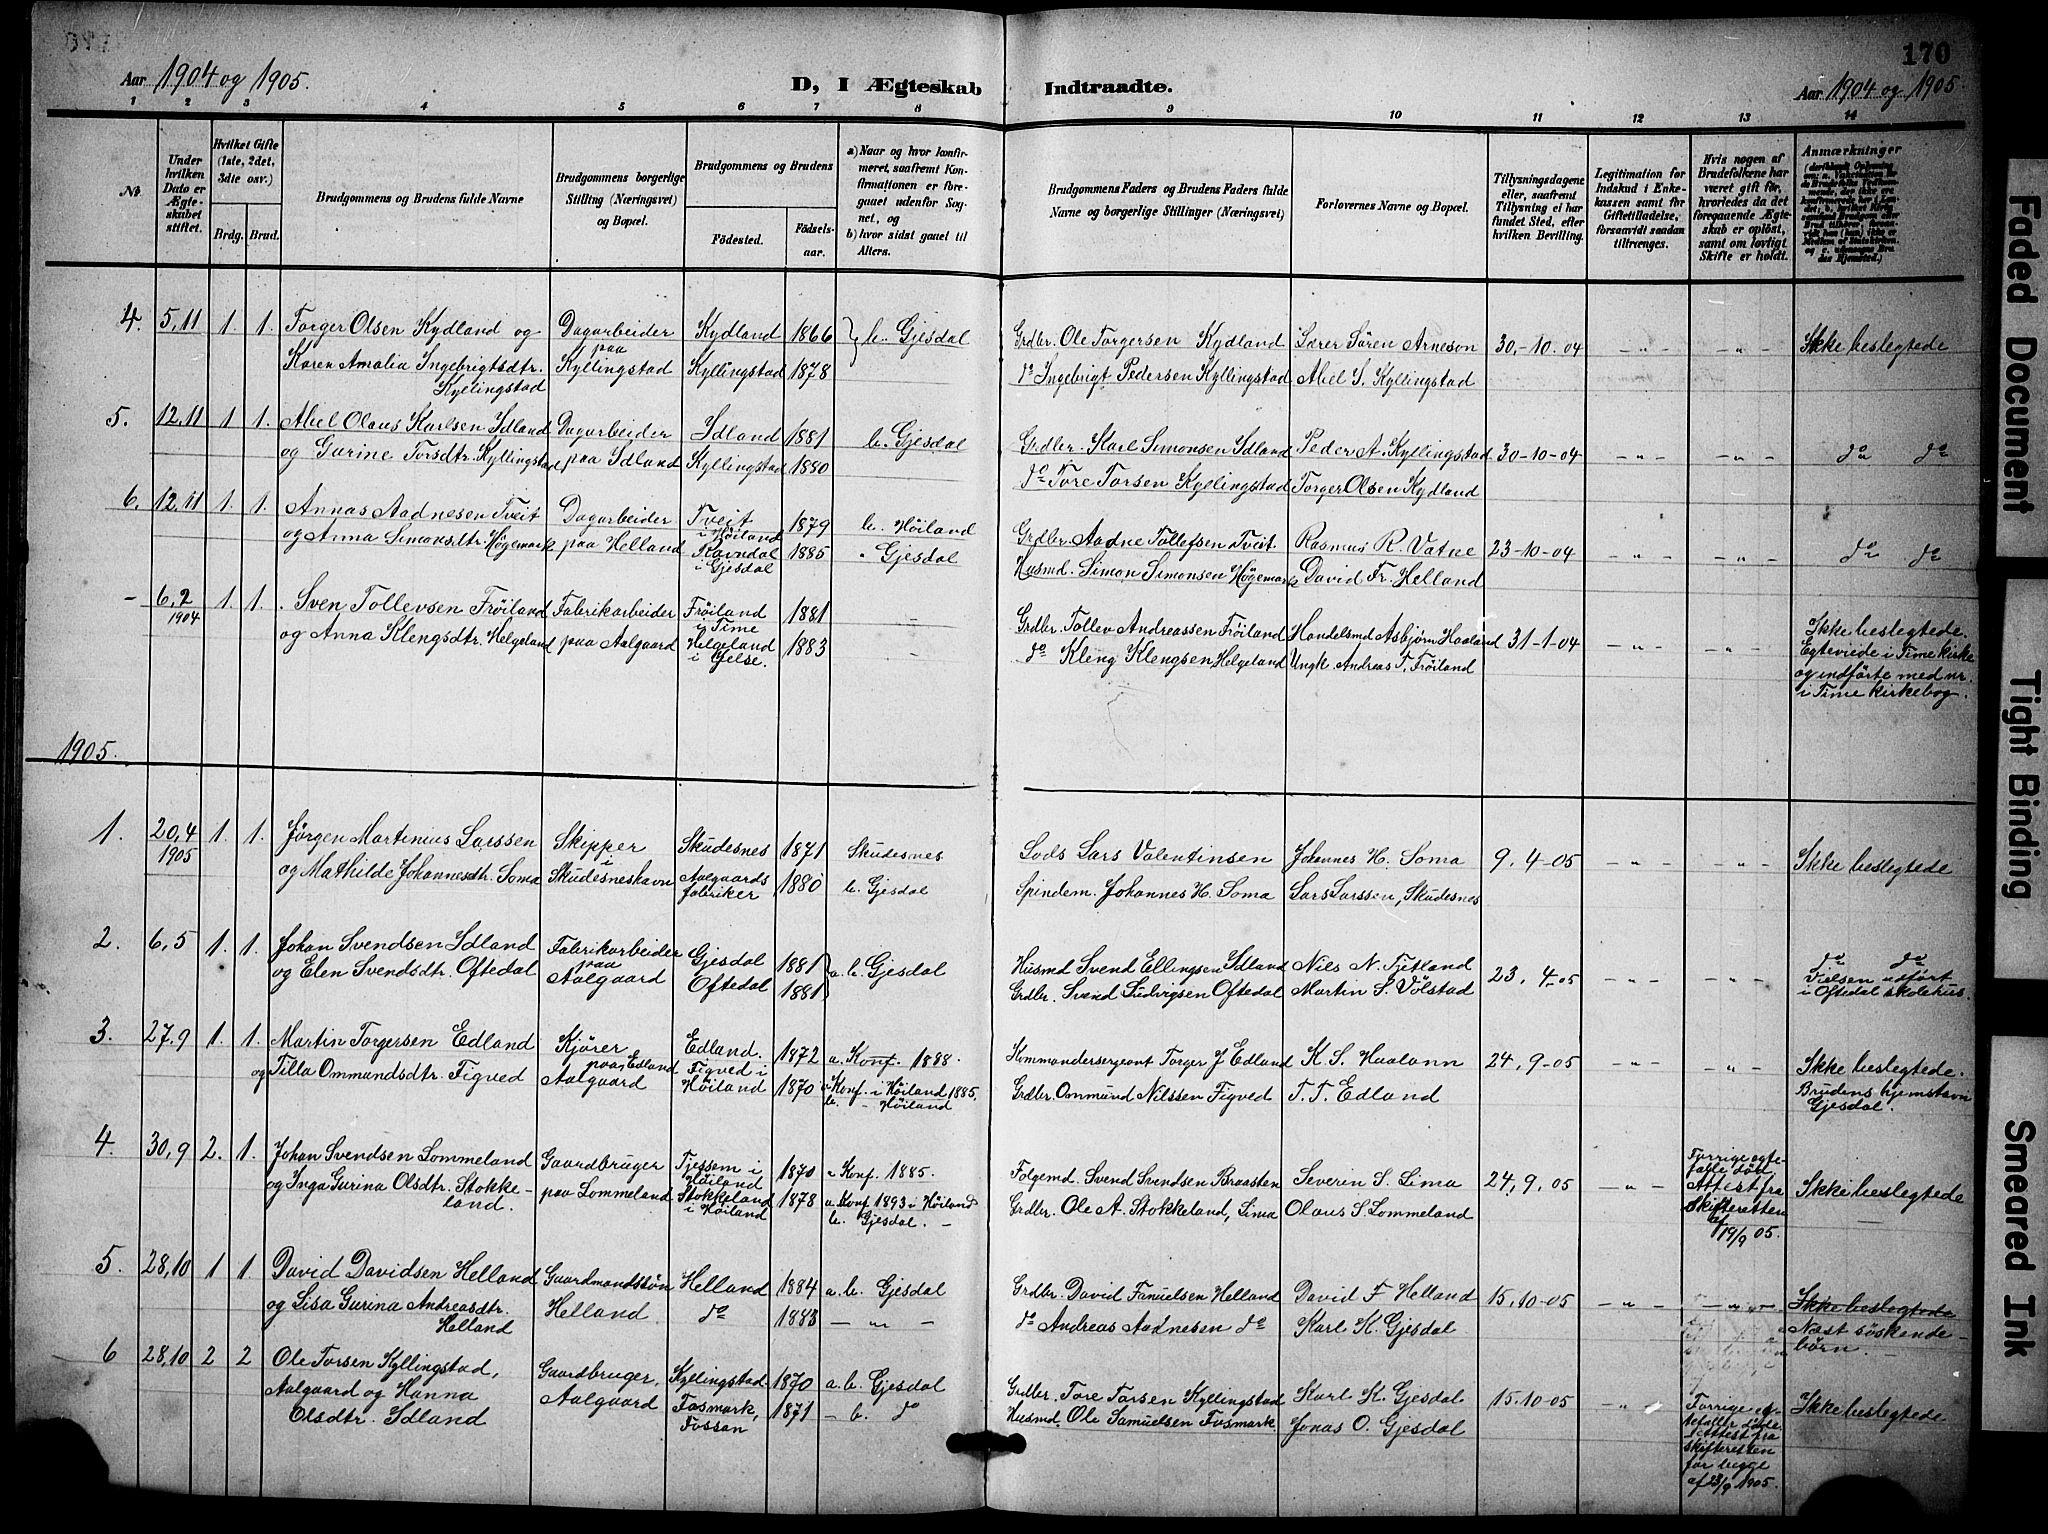 170
Aar 1904 og 1905.
D, I Ægteskab Indtraadte.
Aar 1904 og 1905.
1 2 3 4 5 6 7 8 9 10 11 12 13 14
No.
Under hvilken Dato er Ægteskabet stiftet.
Hvilket Gifte (1ste, 2det, 3die osv.)
Brdg. Brud.
Brudgommens og Brudens fulde Navne
Brudgommens borgerlige Stilling (Næringsvei) og Bopæl.
Brudgommens og Brudens
Fødested.
Fødselsaar.
a) Naar og hvor konfirmeret, saafremt Konfirmationen er foregaaet udenfor Sognet, og
b) hvor sidst gaaet til Alters.
Brudgommens Faders og Brudens Faders fulde Navne og borgerlige Stillinger (Næringsvei)
Forlovernes Navne og Bopæl.
Tillysningsdagene eller, saafremt Tillysning ei har fundet Sted, efter hvilken Bevilling.
Legitimation for Indskud i Enkekassen samt for Giftetilladelse, forsaavidt saadan tiltrænges.
Hvis nogen af Brudefolkene har været gift før, hvorledes da det foregaaende Ægteskab er opløst, samt om lovligt Skifte er holdt.
Anmærkninger
4. 5,11 1. 1. Torger Olsen Kydland og Dagarbeider Kydland 1866 b. Gjesdal Grdbr. Ole Torgersen Kydland Lærer Sören Arneson 30,-10-04 -„- -„- Ikke beslegtede
Karen Amalia Ingebrigtsdtr. paa Kyllingstad Kyllingstad 1878 do Ingebrigt Pedersen Kyllingstad Abel S. Kyllingstad
Kyllingstad
5. 12,11 1 1. Abel Olaus Karlsen Idland Dagarbeider Idland 1881 b. Gjesdal Grdbr. Karl Simonsen Idland Peder A. Kyllingstad 30-10-04 -„- -„- do do
og Gurine Torsdtr. Kyllingstad paa Idland Kyllingstad 1880 do Tore Torsen Kyllingstad Torger Olsen Kydland
6. 12,11 1. 1. Annas Aadnesen Tveit Dagarbeider Tveit i Höiland 1879 b. Höiland Grdbr. Aadne Tollefsen Tveit Rasmus R. Vatne 23-10-04 -„- -„- do do
og Anna Simonsdtr. Høgemark paa Helland Ravndal i Gjesdal 1885 „ Gjesdal Husmd. Simon Simonsen Høgemark David Fr. Helland
- 6,2 1904 1. 1. Sven Tollevsen Fröiland Fabrikarbeider Fröiland i Time 1881 - Grdbr. Tollev Andreassen Fröiland Handelsmd Asbjørn Haaland 31-1-04 -„- -„- Ikke beslegtede.
og Anna Klengsdtr. Helgeland paa Aalgaard Helgeland i Gjelse. 1883 - do Kleng Klengsen Helgeland Ungk. Andreas T. Fröiland Egteviede i Time kirke
og indførte med nr.
i Time kirkebog.
1905.
1. 20,4 1905 1. 1. Jørgen Martinius Larssen Skipper Skudesnes 1871 Skudesnes Lods Lars Valentinsen Johannes H. Soma 9,4-05 -„- -„- Ikke beslegtede
og Mathilde Johannesdtr. Soma i Skudesneshavn Aalgaards fabriker 1880 b. Gjesdal Spindem. Johannes H. Soma Lars Larssen, Skudesnes
2. 6,5 1. 1. Johan Svendsen Idland Fabrikarbeider Gjesdal 1881 a. b. Gjesdal Husmd Svend Ellingsen Idland Nils N. Tjetland 23,4-05 -„- -„- do do
og Elen Svendsdtr. Oftedal paa Aalgaard Oftedal 1881 Grdbr. Svend Ludvigsen Oftedal Martin S. Völstad Vielsen udført
i Oftedal skolehus.
3. 27,9 1. 1. Martin Torgersen Edland Kjører Edland. 1872 a. Konf. 1888. Kommandersergeant Torger J Edland K. S. Haalann 24,9-05 -„- -„- Ikke beslegtede.
og Tilla Ommundsdtr. Figved paa Edland Aalgaard Figved i Höiland 1870 a Konf. i Höiland 1885, b. - Höiland Grdbr. Ommund Nilssen Figved T. T. Edland Brudens hjemstavn
Gjesdal.
4. 30,9 2. 1. Johan Svendsen Lommeland Gaardbruger Tjessem i Höiland 1870 „ Konf. 1885. Folgemd. Svend Svendsen Braasten Severin S. Lima 24,9,05 -„- Forrige egtefalle död. Attest fra Skifteretten af 19/9 05. Ikke beslegtede
og Inga Gurina Olsdtr. Stokkeland. paa Lommeland Stokkeland i Höiland 1878 a. Konf 1893 i Höiland b. Gjesdal. - Grdbr. Ole A. Stokkeland, Lima Olaus S. Lommeland
5. 28,10 1 1. David Davidsen Helland Gaardmandssön Helland 1884 a. b. Gjesdal Grdbr. David Fanuelsen Helland David F Helland 15,10-05 -„- -„- Ikke beslegtede
og Lisa Gurina Andreasdtr. Helland Helland do 1883 - „ - do Andreas Aadnesen do Karl K. Gjesdal Næst söskende-
börn.
6 28,10 2 2 Ole Torsen Kyllingstad, Gaardbruger, Kyllingstad 1870 a. b. Gjesdal Grdbr. Tore Torsen Kyllingstad Karl K. Gjesdal 15.10-05 -„- Forrige egtefaller döde. Attest fra skifteretten for begge af 23/9 1905. Ikke beslegtede
Aalgaard og Hanna Olsdtr. Idland Aalgaard Fosmark, Fossan 1871 - b. do Husmd. Ole Samuelsen Fosmark. Jonas O. Gjesdal
Faded Document
Tight Binding
Smeared Ink